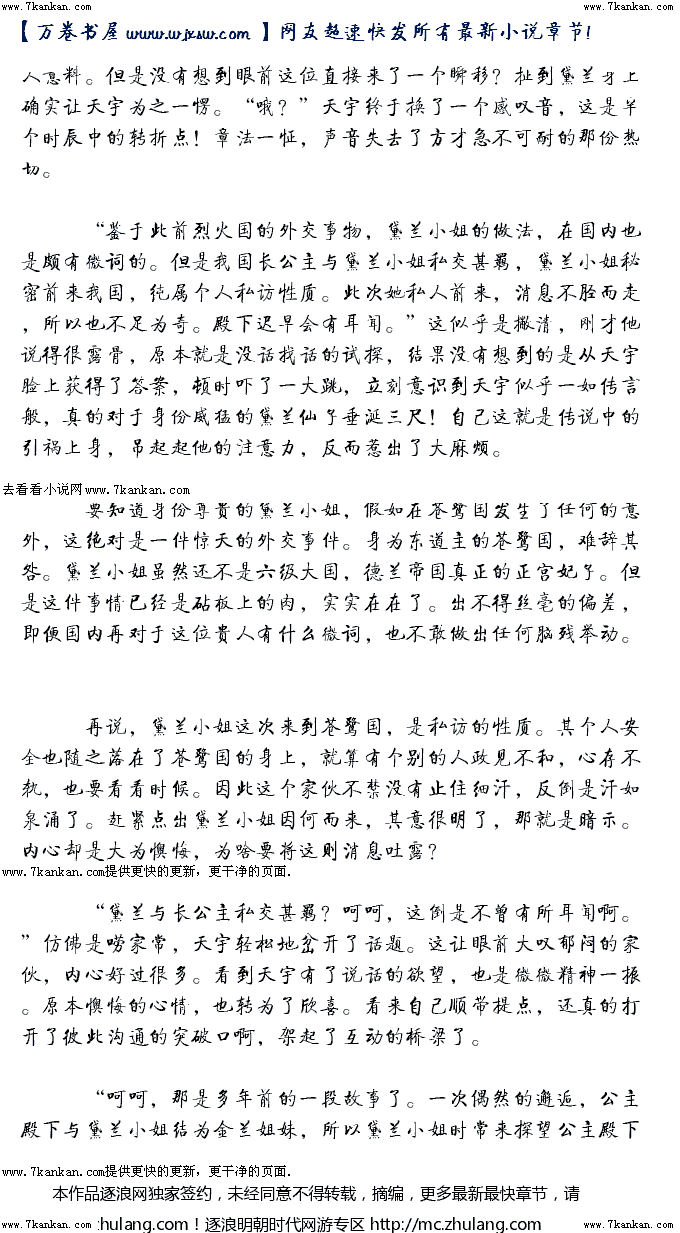 www.7kankan.com www.7kankan.com
【万卷书屋 www.wjxsw.com 】网友超速快发所有最新小说章节!
人意料。但是没有想到眼前这位直接来了一个瞬移？扯到黛兰身上
确实让天宇为之一愣。“哦？”天宇终于换了一个感叹音，这是半
个时辰中的转折点！章法一怔，声音失去了方才急不可耐的那份热
切。
“鉴于此前烈火国的外交事物，黛兰小姐的做法，在国内也
是颇有微词的。但是我国长公主与黛兰小姐私交甚羁，黛兰小姐秘
密前来我国，纯属个人私访性质。此次她私人前来，消息不胫而走
，所以也不足为奇。殿下迟早会有耳闻。”这似乎是撇清，刚才他
说得很露骨，原本就是没话找话的试探，结果没有想到的是从天宇
脸上获得了答案，顿时吓了一大跳，立刻意识到天宇似乎一如传言
般，真的对于身份威猛的黛兰仙子垂涎三尺！自己这就是传说中的
引祸上身，吊起起他的注意力，反而惹出了大麻烦。
去看看小说网www.7kankan.com
要知道身份尊贵的黛兰小姐，假如在苍鹭国发生了任何的意
外，这绝对是一件惊天的外交事件。身为东道主的苍鹭国，难辞其
咎。黛兰小姐虽然还不是六级大国，德兰帝国真正的正宫妃子。但
是这件事情已经是砧板上的肉，实实在在了。出不得丝毫的偏差，
即便国内再对于这位贵人有什么微词，也不敢做出任何脑残举动。
再说，黛兰小姐这次来到苍鹭国，是私访的性质。其个人安
全也随之落在了苍鹭国的身上，就算有个别的人政见不和，心存不
轨，也要看看时候。因此这个家伙不禁没有止住细汗，反倒是汗如
泉涌了。赶紧点出黛兰小姐因何而来，其意很明了，那就是暗示。
内心却是大为懊悔，为啥要将这则消息吐露？
www.7kankan.com提供更快的更新，更干净的页面.
“黛兰与长公主私交甚羁？呵呵，这倒是不曾有所耳闻啊。
”仿佛是唠家常，天宇轻松地岔开了话题。这让眼前大叹郁闷的家
伙，内心好过很多。看到天宇有了说话的欲望，也是微微精神一振
。原本懊悔的心情，也转为了欣喜。看来自己顺带提点，还真的打
开了彼此沟通的突破口啊，架起了互动的桥梁了。
“呵呵，那是多年前的一段故事了。一次偶然的邂逅，公主
殿下与黛兰小姐结为金兰姐妹，所以黛兰小姐时常来探望公主殿下
www.7kankan.com提供更快的更新，更干净的页面.
本作品逐浪网独家签约，未经同意不得转载，摘编，更多最新最快章节，请
www.7kankan.com zhulang.com！逐浪明朝时代网游专区 http://mc.zhulang.com www.7kankan.com